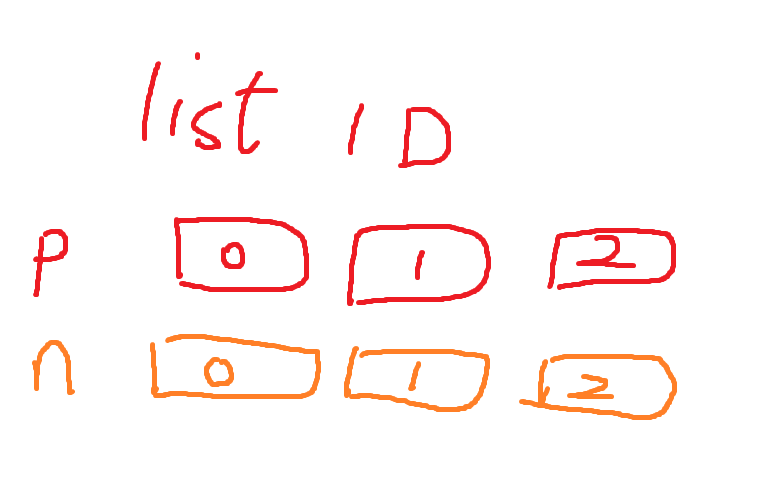 list 1D
P 0 1 2
n 0 1 2